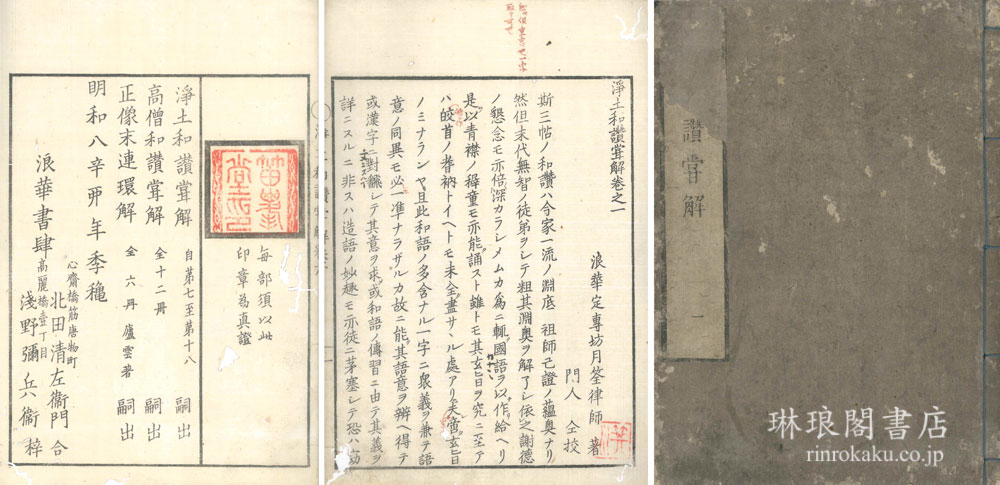 讚甞解
一
淨土和讚甞解卷之一
浪華定專坊月筌律師 著
門人 仝挍
斯三帖ノ和讚ハ今家一流ノ淵底 祖師己證ノ蘊奥ナリ
然但末代無智ノ徒弟ヲシテ粗其淵奥ヲ解了シ依之謝德
ノ懇念モ亦倍深カラシメムカ為ニ輒國語ヲ以作給ヘリ
是以青襟ノ稺童モ亦能誦スト雖トモ其玄旨ヲ究ニ至テ
ハ皎首ノ耆衲トイヘトモ未全盡サヽル處アリ夫啻玄旨
ノミナランヤ且此和語ノ多含ナル一字ニ衆義ヲ兼テ語
意ノ同異モ必一準ナラサルカ故ニ能其語意ヲ辨ヘ得テ
或漢字ニ對飜シテ其意ヲ求或和語ノ傳習ニ由テ其義ヲ
詳ニスルニ非スハ造語ノ妙趣モ亦徒ニ茅塞シテ恐ハ幼
每部須以此
印章為真證
淨土和讚甞解 自第七至第十八 嗣出
高僧和讚甞解 全十二冊 嗣出
正像末連環解 全六冊 廬雲著 嗣出
明和八辛夘年季龝
浪華書肆
心齋橋筋唐物町
北田清左衞門 合
高麗橋壹丁目
淺野彌兵衞 梓
琳琅閣書店
rinrokaku.co.jp